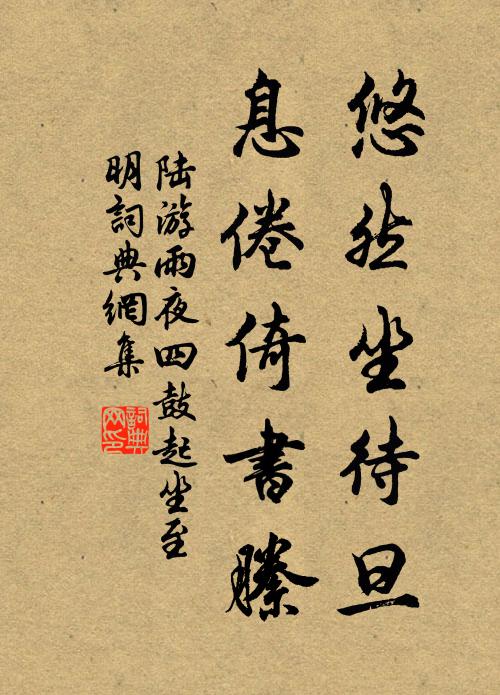 悠然坐待旦
息倦倚書縢
陆游雨夜四鼓起坐至
明詞典網集
詞典
网印